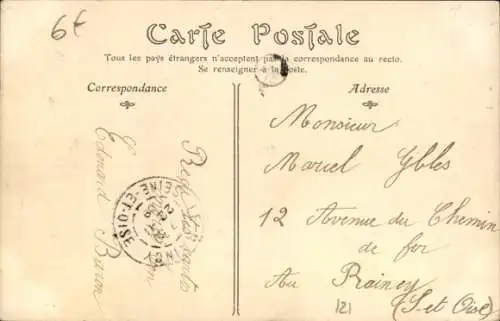 6€
Carte Postale
Tous les pays étrangers n'acceptent pas la correspondance au recto.
Se renseigner à la poste.
Correspondance
Adresse
Edouard Baron
SEINE-ET-OISE
Monsieur
Marcel Ybles
12 Avenue du Chemin
de fer
Au Raincy
121
(S et Oise)